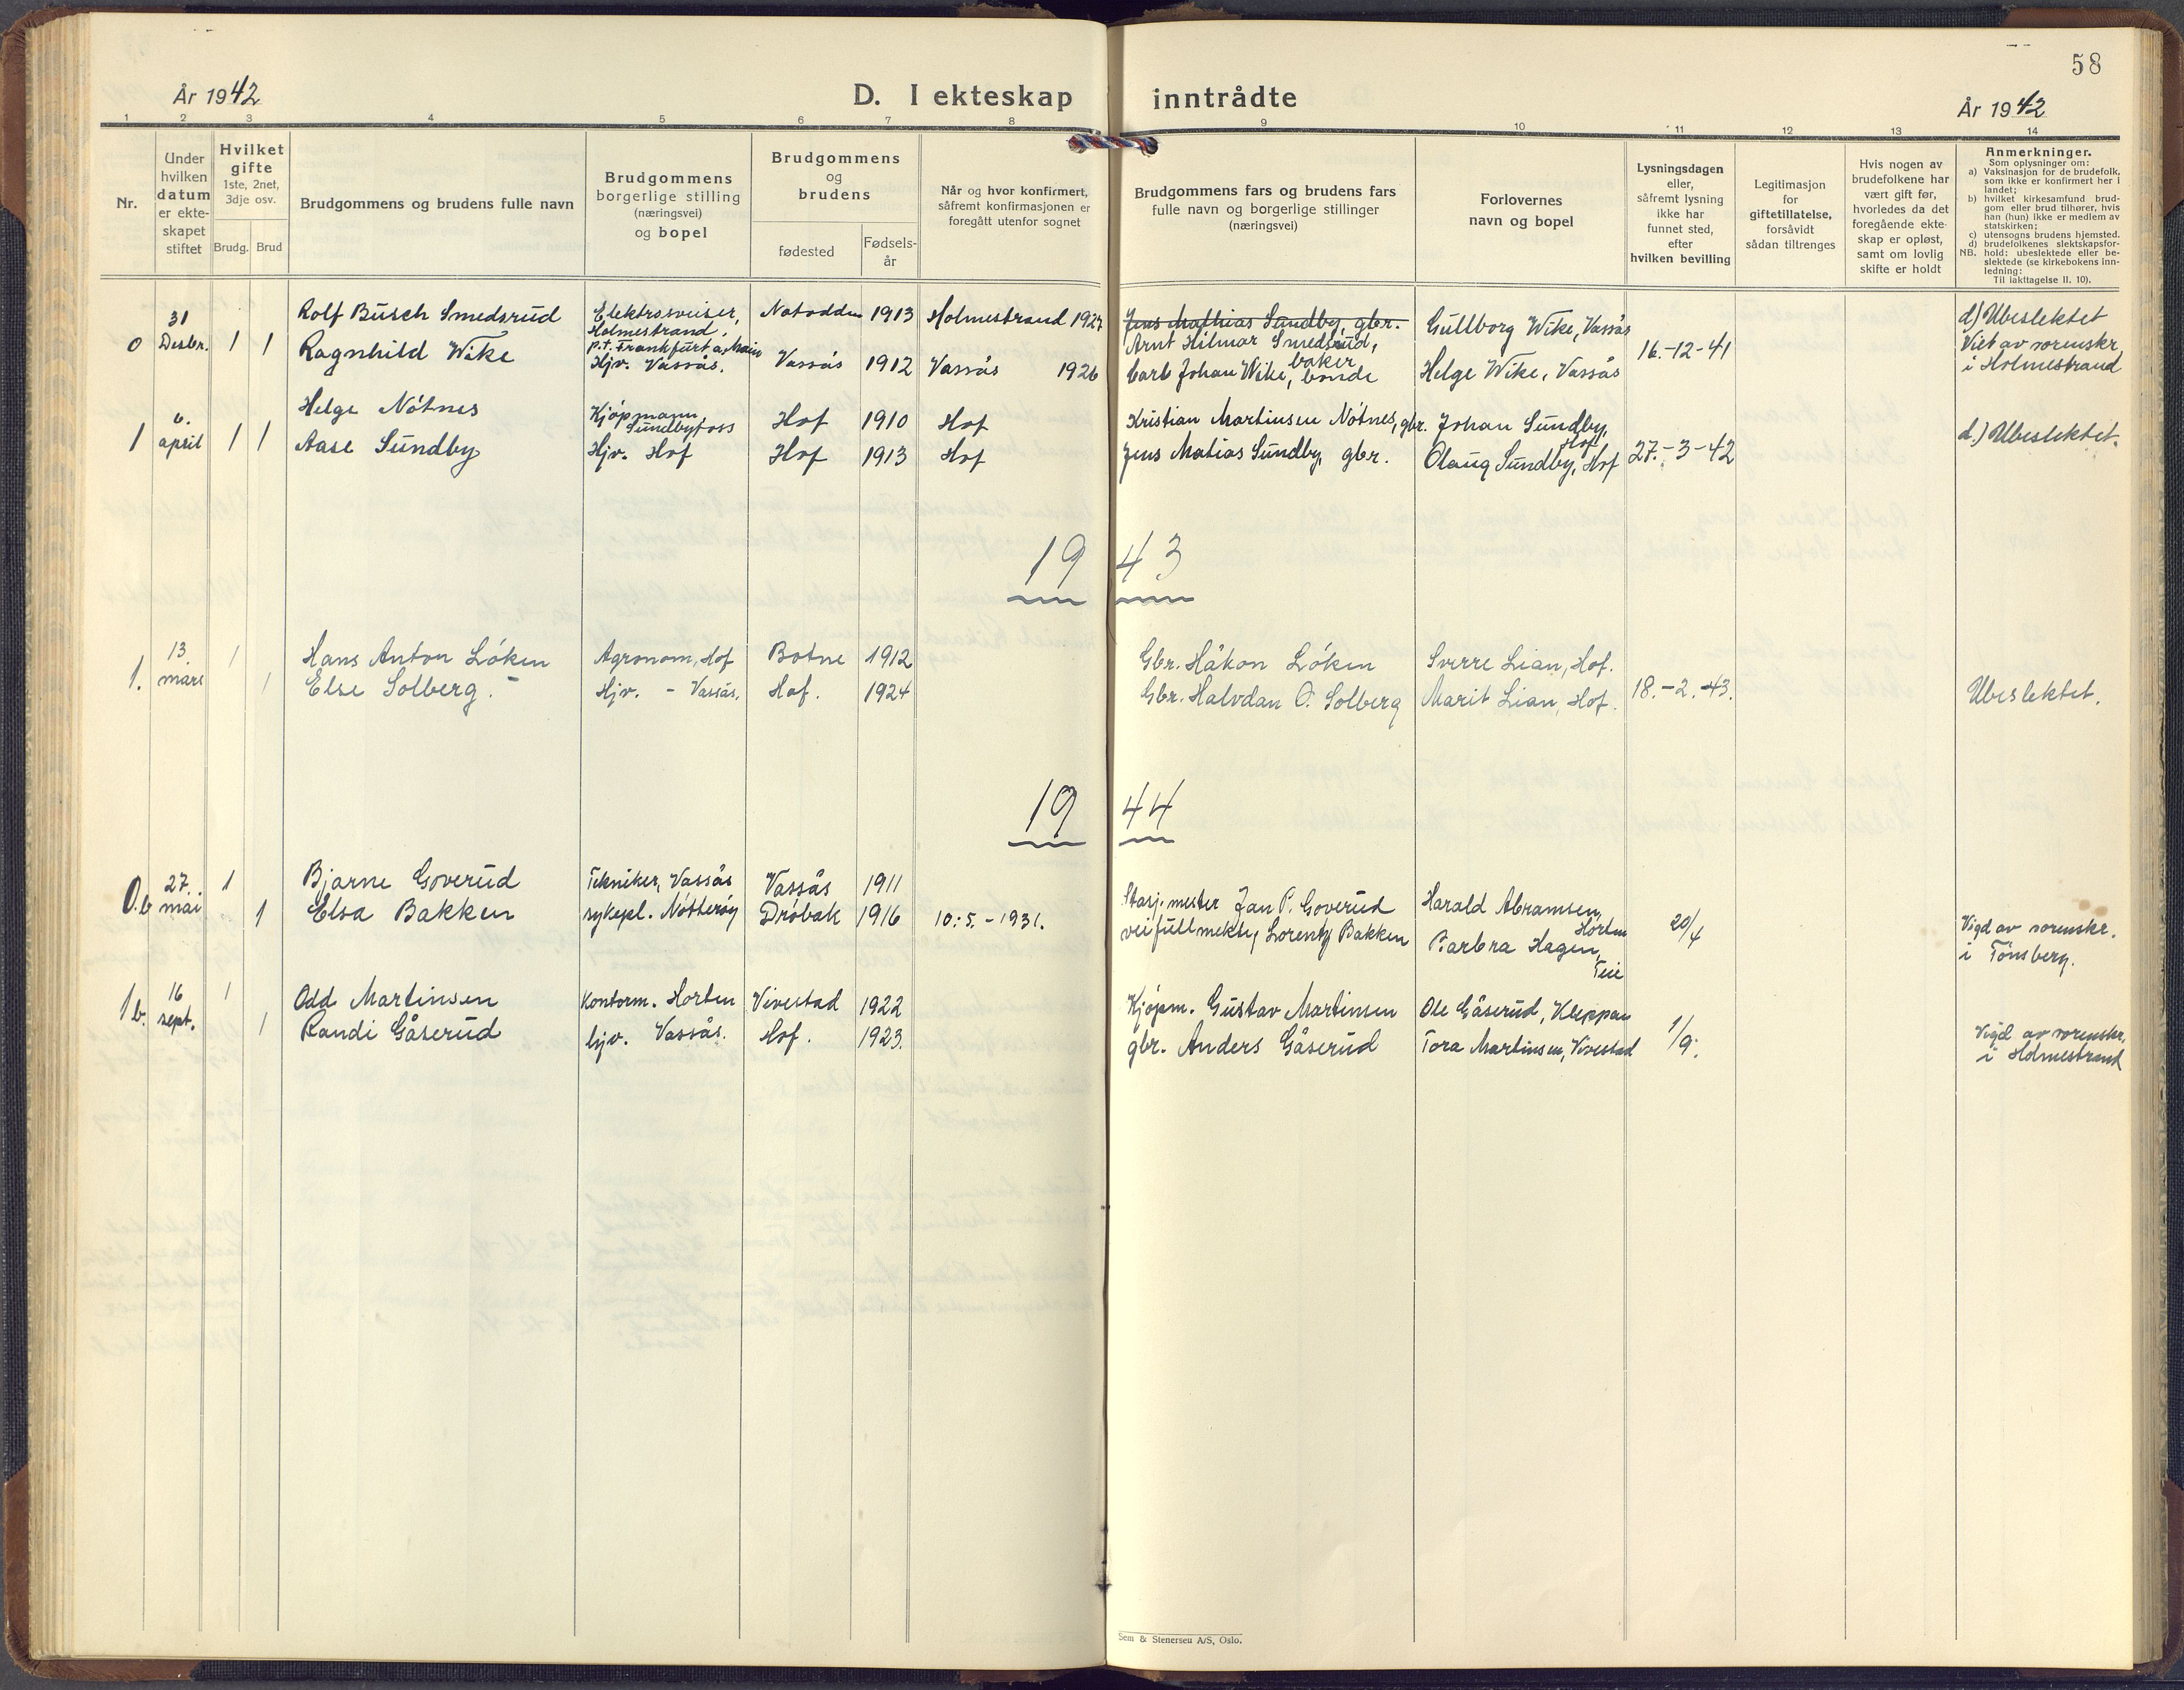 58
År 1942
D. I ekteskap inntrådte
År 1942
1 2 3 4 5 6 7 8 9 10 11 12 13 14
Nr.
Under
hvilken
datum
er ekte-
skapet
stiftet
Hvilket
gifte
1ste, 2net,
3dje osv.
Brudg. Brud
Brudgommens og brudens fulle navn
Brudgommens
borgerlige stilling
(næringsvei)
og bopel
Brudgommens
og
brudens
fødested
Fødsels-
år
Når og hvor konfirmert,
såfremt konfirmasjonen er
foregått utenfor sognet
Brudgommens fars og brudens fars
fulle navn og borgerlige stillinger
(næringsvei)
Forlovernes
navn og bopel
Lysningsdagen
eller,
såfremt lysning
ikke har
funnet sted,
efter
hvilken bevilling
Legitimasjon
for
giftetillatelse,
forsåvidt
sådan tiltrenges
Hvis nogen av
brudefolkene har
vært gift før,
hvorledes da det
foregående ekte-
skap er opløst,
samt om lovlig
skifte er holdt
Anmerkninger.
Som oplysninger om:
a) Vaksinasjon for de brudefolk,
som ikke er konfirmert her i
landet;
b) hvilket kirkesamfund brud-
gom eller brud tilhører, hvis
han (hun) ikke er medlem av
statskirken;
c) utensogns brudens hjemsted.
d) brudefolkenes slektskapsfor-
NB. hold: ubeslektede eller be-
slektede (se kirkebokens inn-
ledning:
Til iakttagelse II. 10).
0
31
Desbr.
1 1
Rolf Busch Smedsrud
Ragnhild Wike
Elektrosveiser,
Holmestrand.
p.t. Frankfurt a. Main
Hjv. Vassås.
Notodden 1913 Holmestrand 1927
Vassås 1912 Vassås 1926
Jens Mathias Sundby, gbr.
Arnt Hilmar Smedsrud,
baker
Carl Johan Wike, bonde
Gullborg Wike, Vassås
Helge Wike, Vassås
16.-12-41
d) Ubeslektet
Viet av sorenskr.
i Holmestrand
1
6.
april
1 1
Helge Nötnes
Aase Sundby
Kjöpmann,
Sundbyfoss
Hjv. Hof
Hof 1910 Hof
Hof 1913 Hof
Kristian Martinsen Nötnes, gbr.
Jens Matias Sundby, gbr.
Johan Sundby,
Hof
Olaug Sundby, Hof
27.-3-42
d.) Ubeslektet.
1943
1.
13.
mars
1
1
Hans Anton Löken
Else Solberg.
Agronom, Hof
Hjv. - Vassås.
Botne 1912
Hof. 1924
Gbr. Håkon Löken
Gbr. Halvdan O. Solberg
Sverre Lian, Hof.
Marit Lian, Hof.
18.-2.-43.
Ubeslektet.
1944
0.b
27.
mai
1
1
Bjarne Goverud
Elsa Bakken
Tekniker, Vassås
sykepl. Nötteröy
Vassås 1911
Dröbak 1916 10.5.-1931.
Stasj.mester Jan P. Goverud
veifullmektig Lorentz Bakken
Harald Abramsen,
Horten
Barbra Hagen,
Teie
20/4
Vigd av sorenskr.
i Tönsberg.
1 b.
16
sept.
1
1
Odd Martinsen
Randi Gåserud
Kontorm. Horten
hjv. Vassås.
Vivestad 1922
Hof. 1923.
Kjöpm. Gustav Martinsen
gbr. Anders Gåserud
Ole Gåserud, Kleppan
Tora Martinsen, Vivestad
1/9.
Vigd av sorenskr.
i Holmestrand
Sem & Stenersen A/S, Oslo.